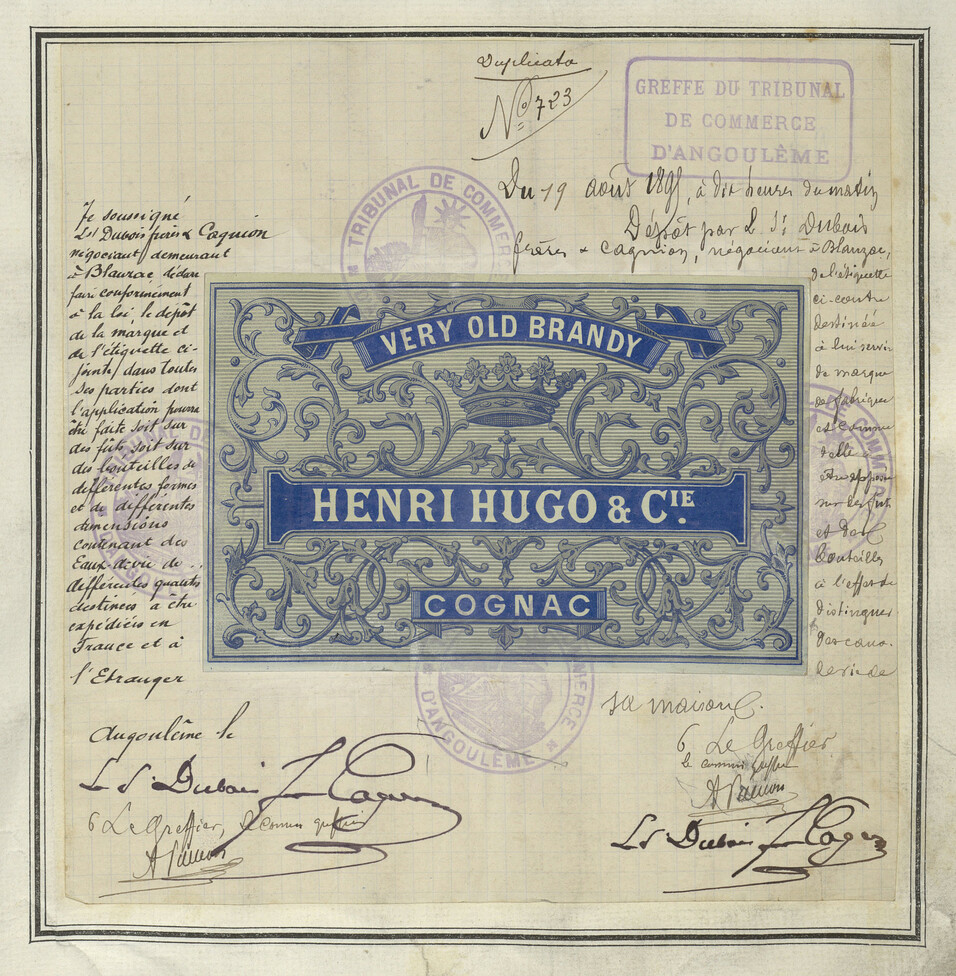 Duplicata
No 723
GREFFE DU TRIBUNAL
DE COMMERCE
D'ANGOULÊME
Du 19 août 1895, à dix heures du matin
Dépôt par L. St Dubois
frères & Cagnion, négociant à Blanzac,
de l'étiquette
ci-contre
destinée
à lui servir
de marque
de fabrique
et de comme
elle à
être apposée
sur les fûts
et des
bouteilles
à l'effet de
distinguer
des eaux
de vie de
sa maison.
Je soussigné
Ls Dubois frères & Cagnion
négociant demeurant
à Blanzac déclare
faire conformément
à la loi, le dépôt
de la marque et
de l'étiquette ci-
jointe, dans toutes
ses parties dont
l'application pourra
être faite soit sur
des fûts soit sur
des bouteilles de
différentes formes
et de différentes
dimensions
contenant des
Eaux-de-vie de
différentes qualités
destinées à être
expédiées en
France et à
l'Etranger
TRIBUNAL DE COMMERCE
D'ANGOULÊME
VERY OLD BRANDY
HENRI HUGO & CIE.
COGNAC
Angoulême le
Ls St Dubois frères Cagnion
Le Greffier, le commis greffier
Le Greffier
le commis greffier
Ls St Dubois frères Cagnion